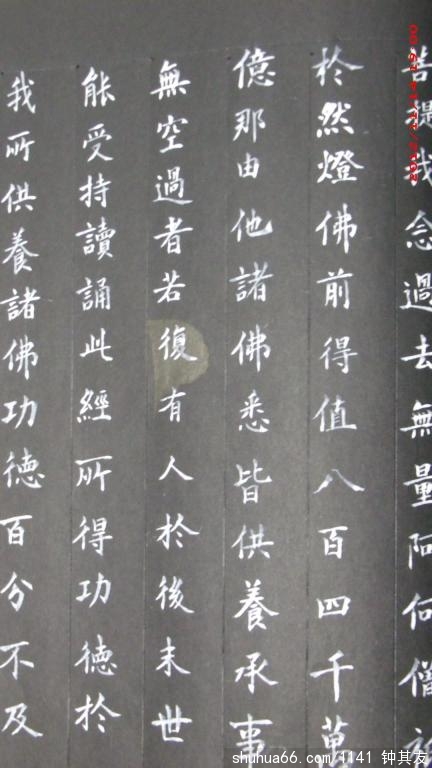 菩提我念過去無量阿何僧
於然燈佛前得值八百四千萬
億那由他諸佛悉皆供養承事
無空過者若復有人於後末世
能受持讀誦此經所得功德於
我所供養諸佛功德百分不及
shuhua66.com/1141 钟其友